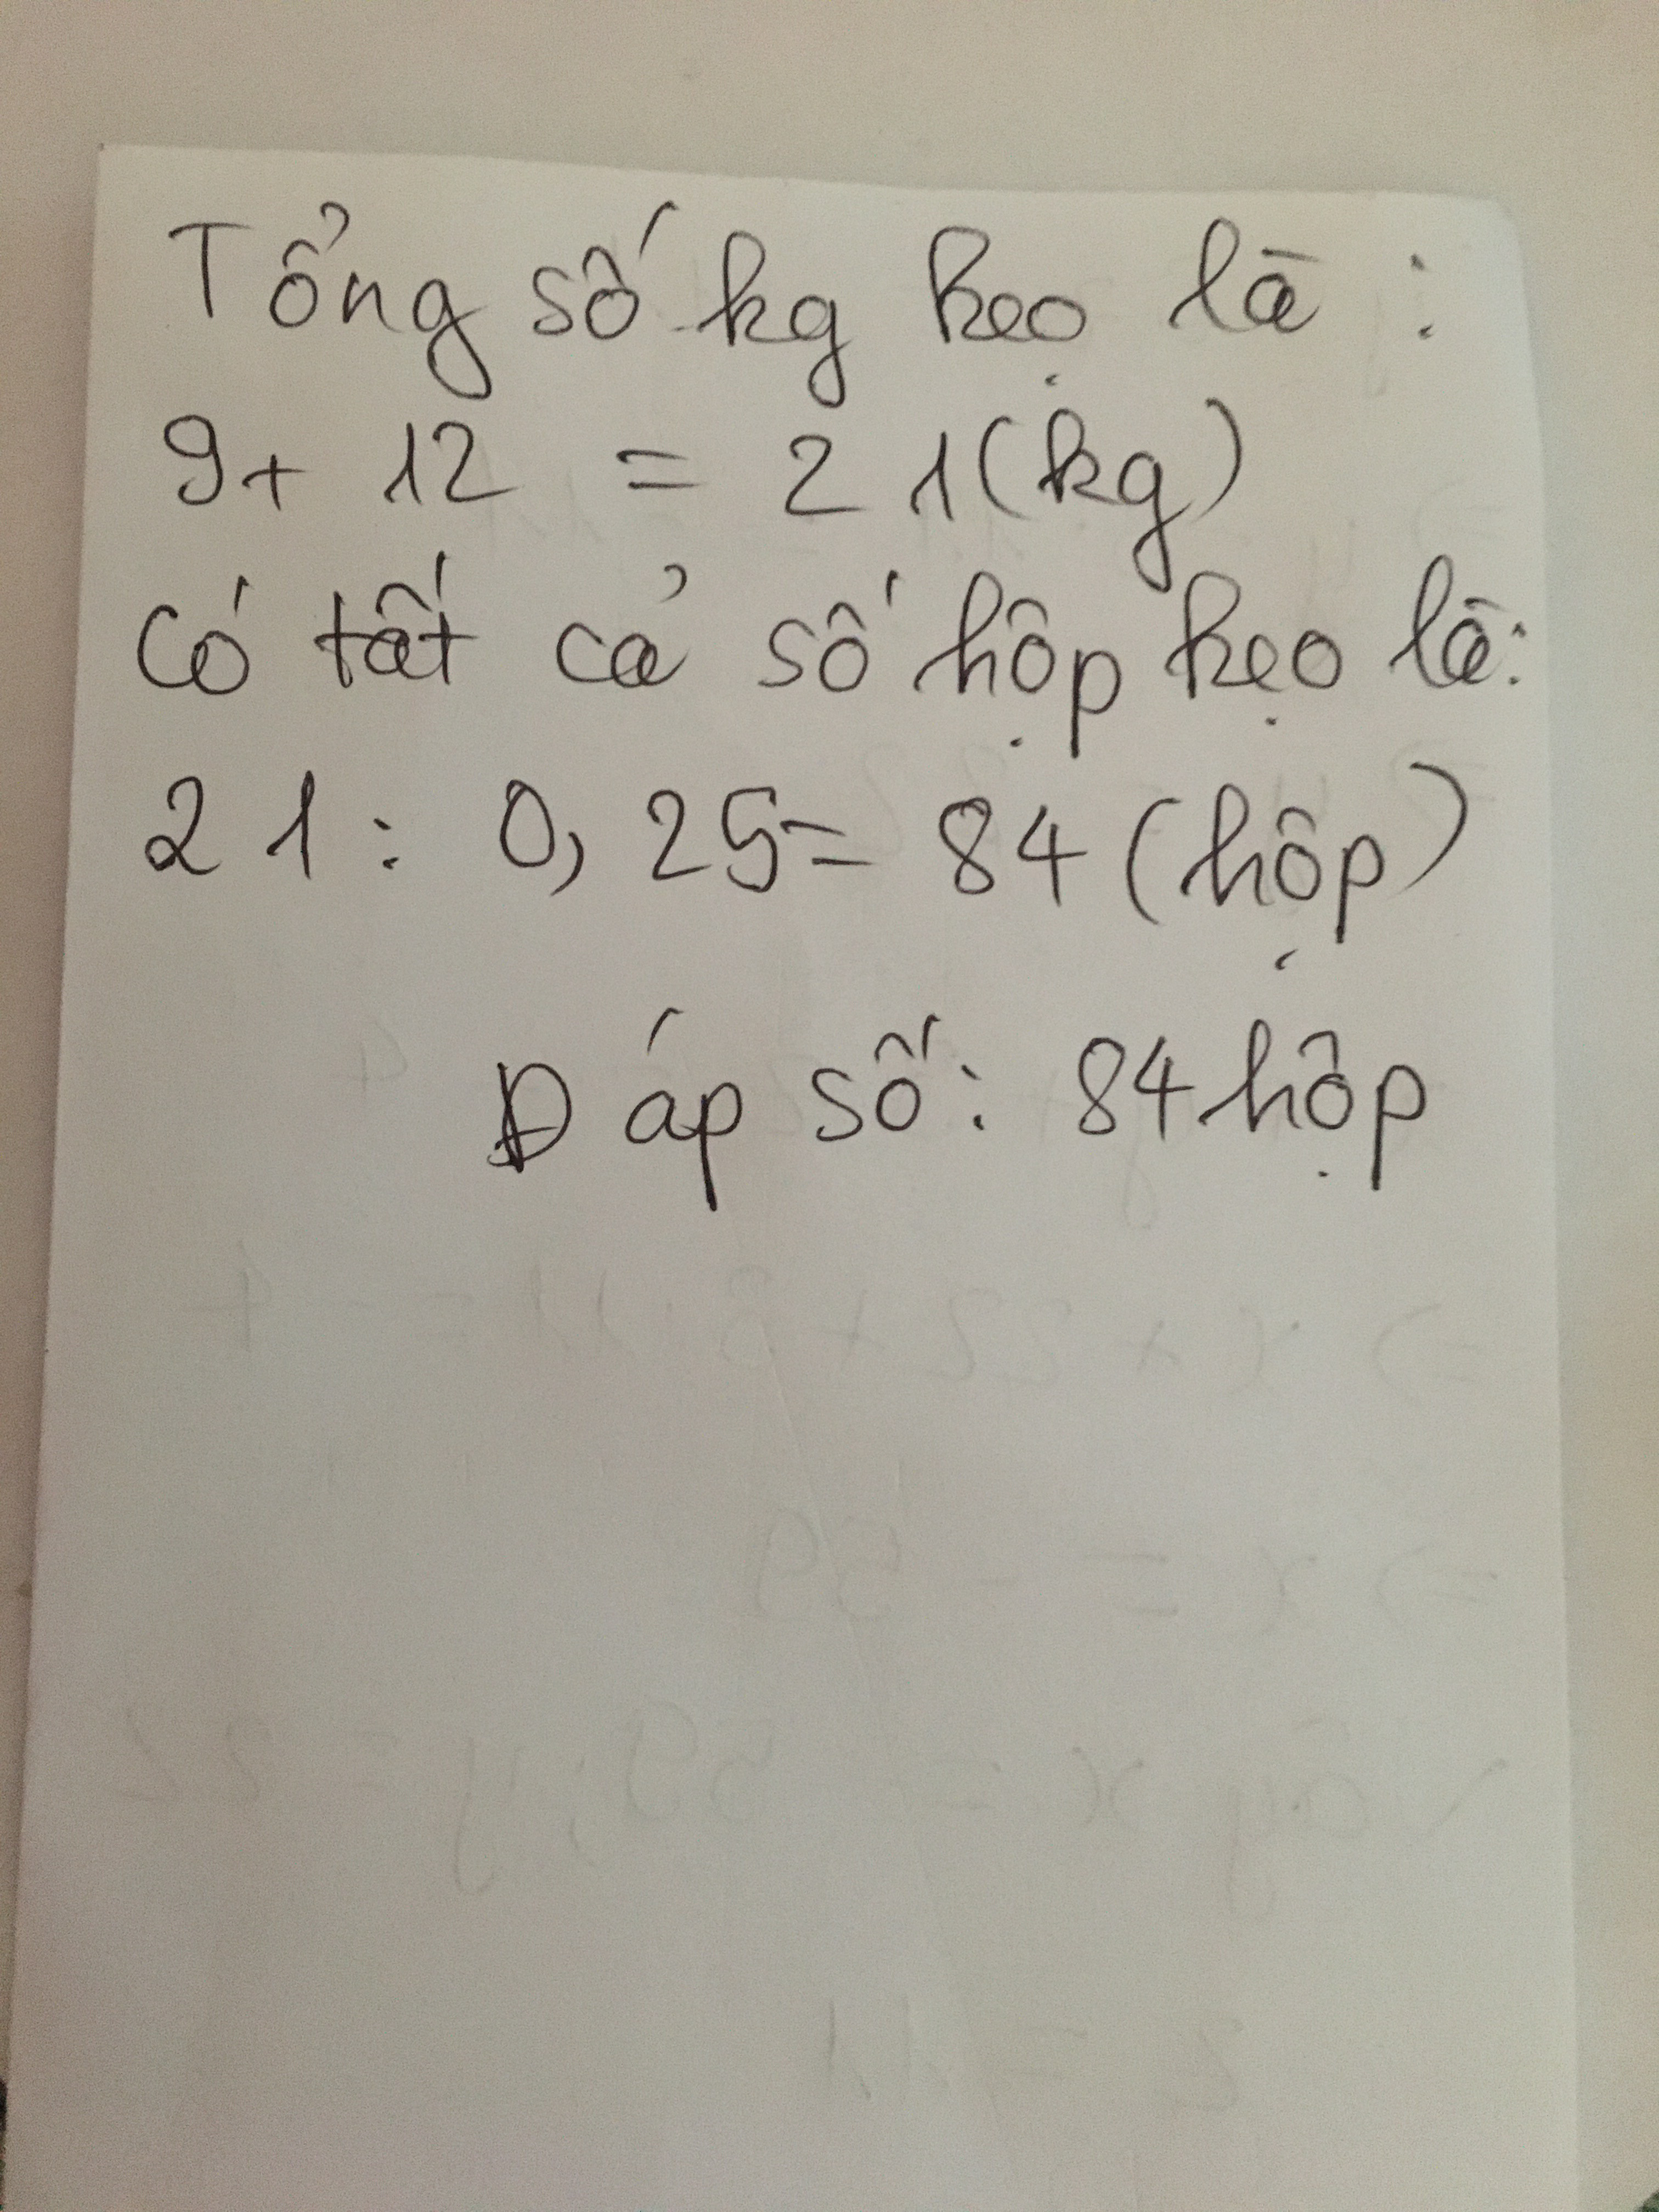 Tổng số kg kẹo là:
9 + 12 = 21 (kg)
Có tất cả số hộp kẹo là:
21 : 0,25 = 84 (hộp)
Đáp số: 84 hộp